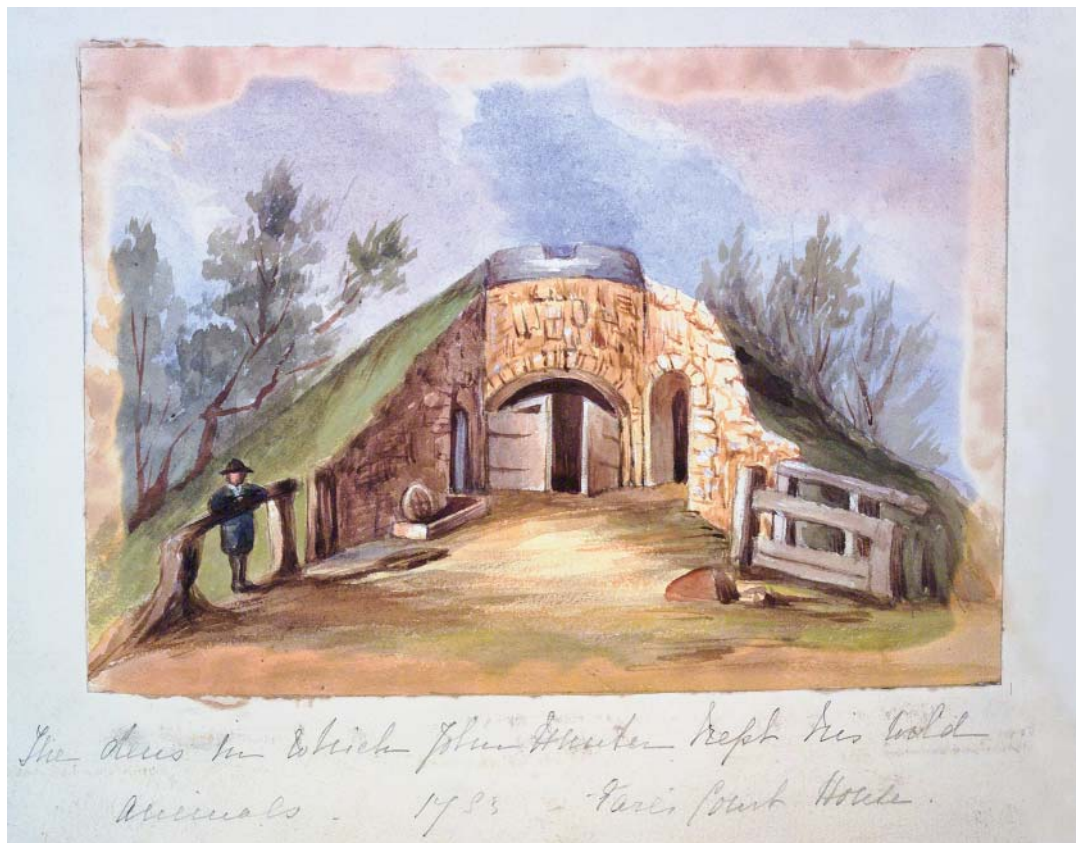 The dens in which John Hunter kept his wild
animals. 1783 - Earl's Court House.